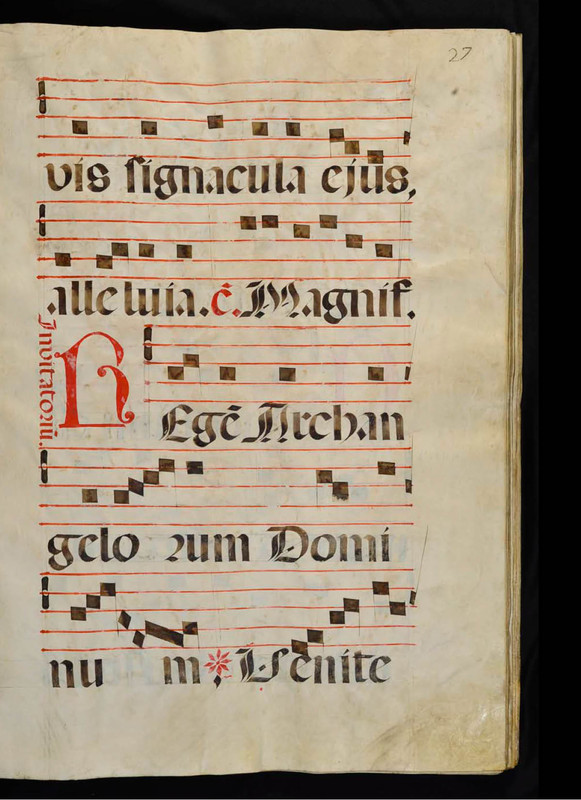 27
vis signacula ejus,
alleluia. c̃. Magnif.
Invitatoriū.
REgē Archan
gelo rum Domi
nu m, * Venite